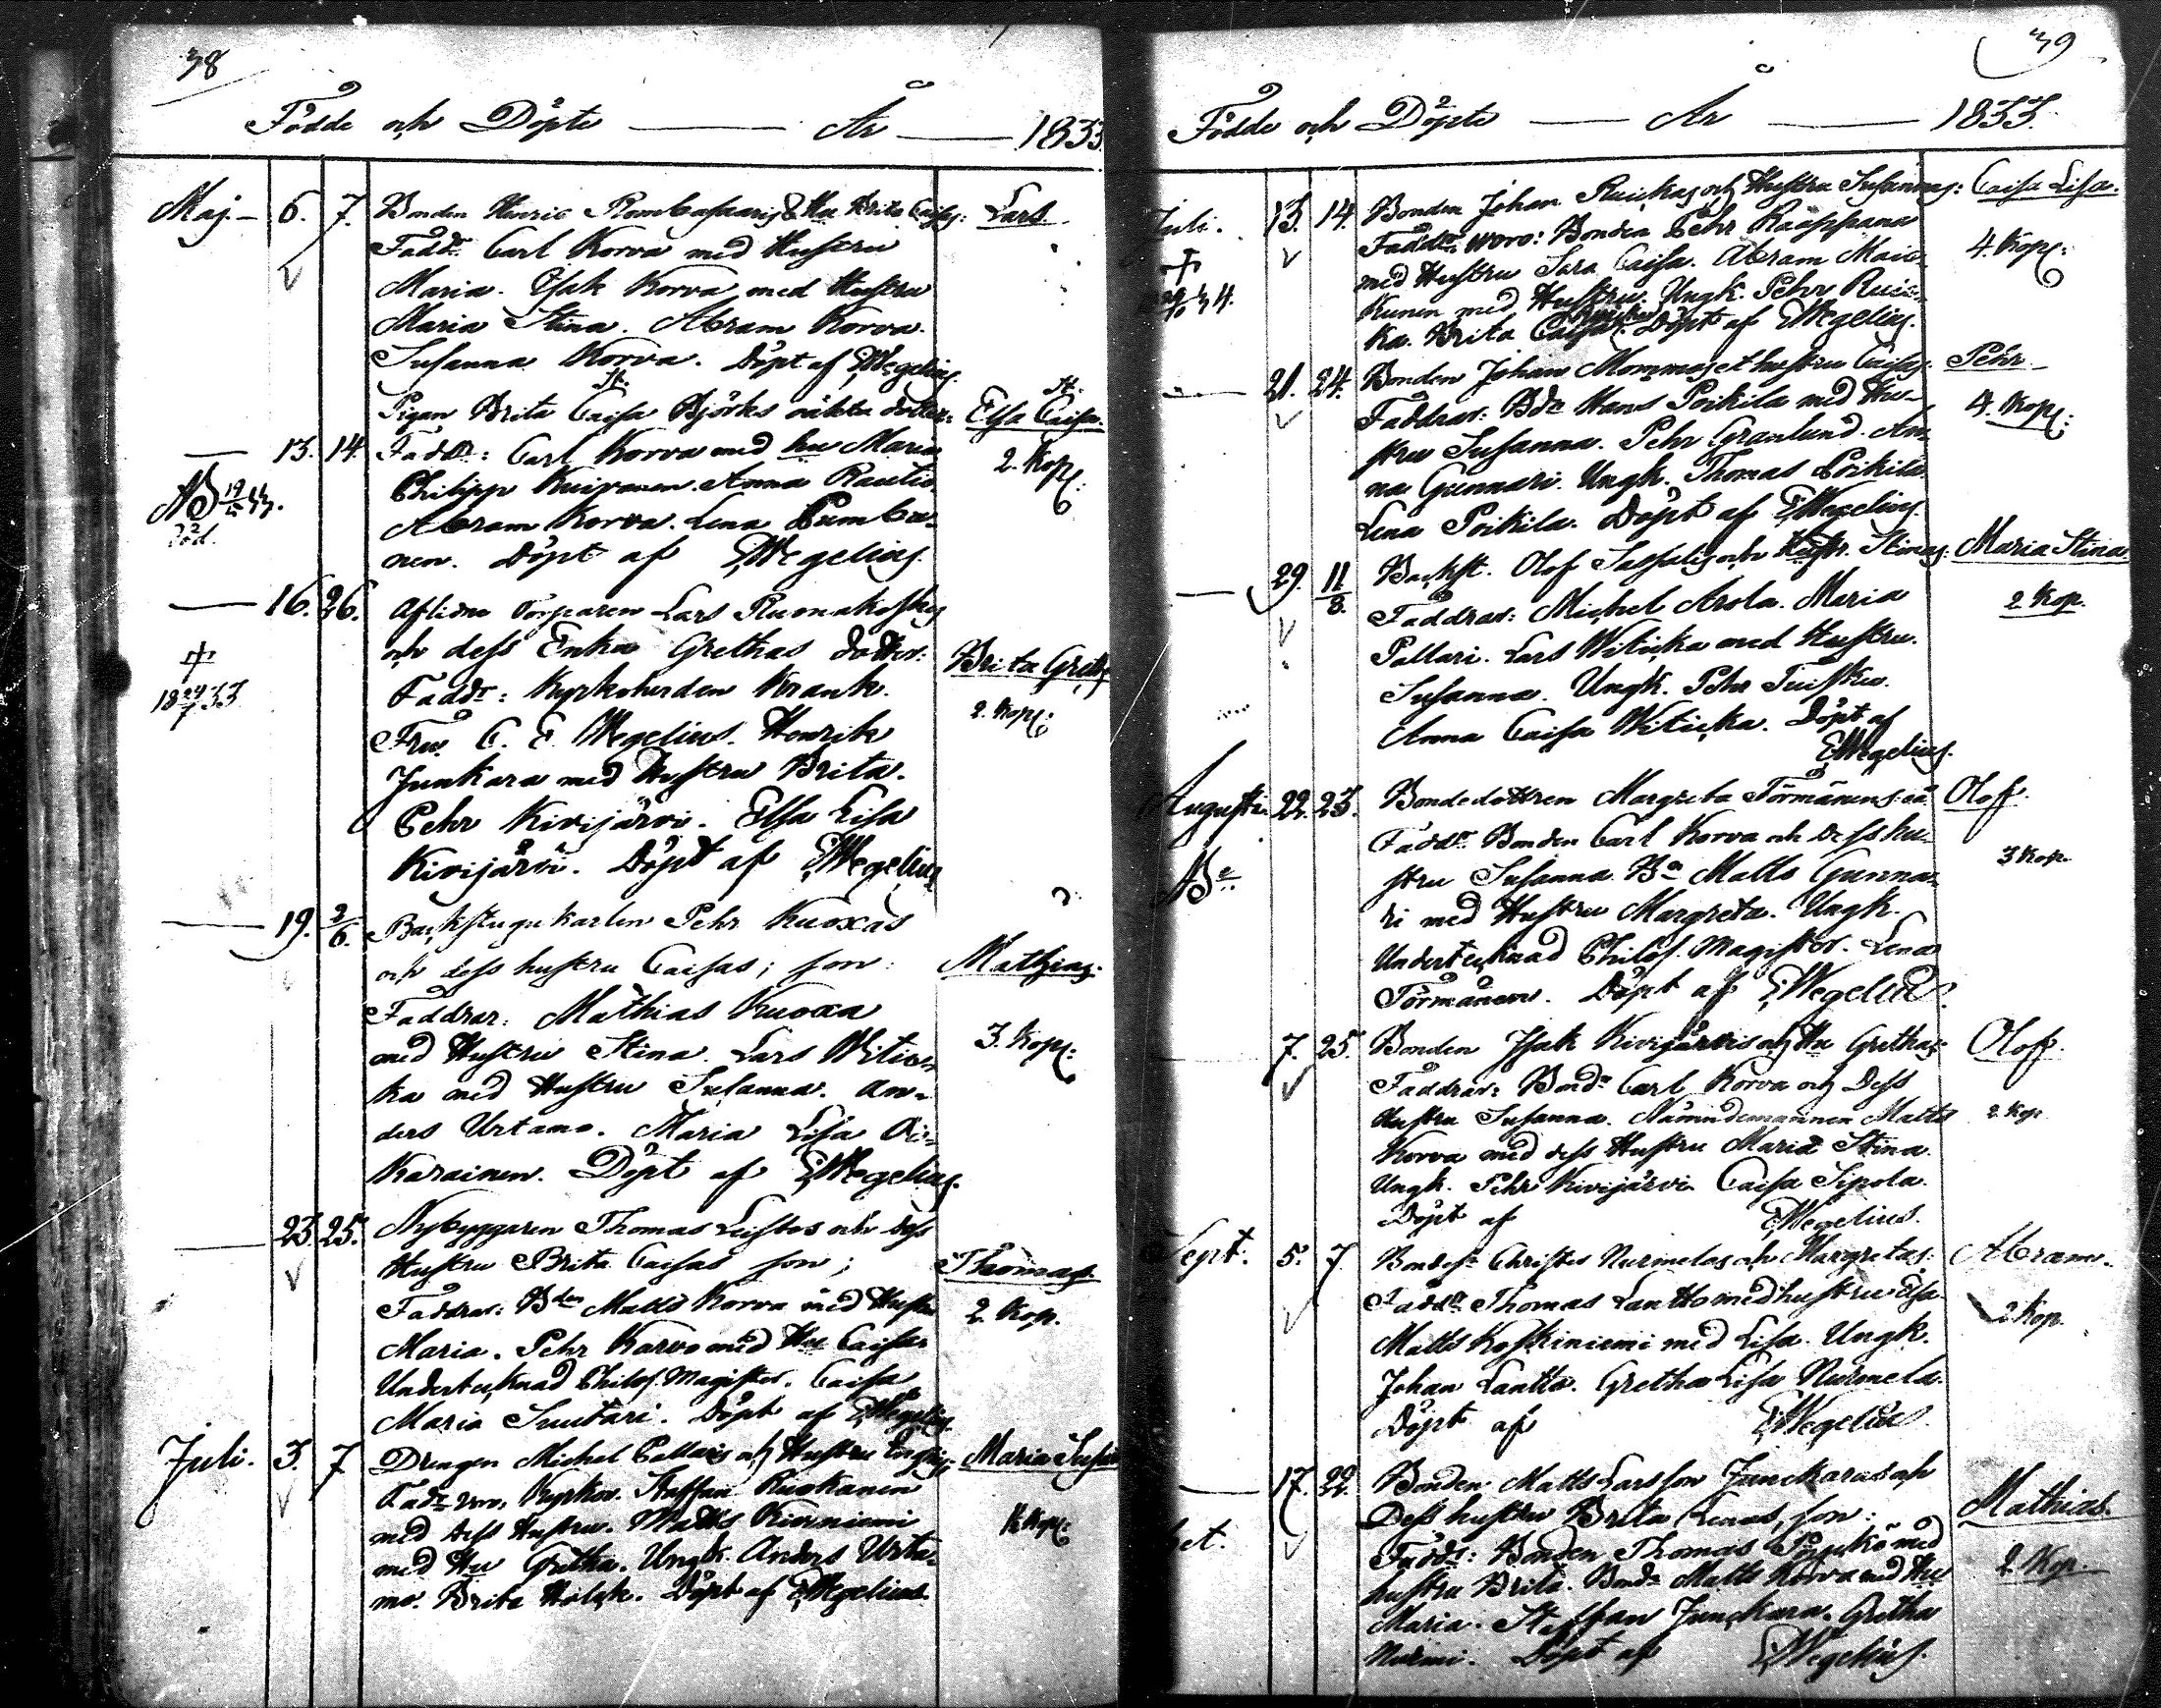 38
Födde och Döpte — År — 1833.
Maj. — 6. 7. Bonden Henric &Hu Brita Caisas: Lars
Fadd: Carl Korva med Hustru
Maria. Isak Korva med Hustru
Maria Stina. Abram Korva.
Susanna Korva. Döpt af EWegelius.
Pigan Brita Caisa Björks oäkta dotter: Elsa Caisa.
— 13. 14. Fadd: Carl Korva med hu Maria 2. Kop:
Philipp Kuivanen. Anna Rautio
Abram Korva. Lena Pumba-
nen. Döpt af EWegelius.
— 16. 26. Aflidne Torparen Lars Ruonakoskis
och dess Enka Grethas dotter: Brita Greta
Fadd: Kyrkoherden Krank.
Fru C. E. Wegelius. Henrik 2. Kop:
Junkara med Hustru Brita.
Pehr Kivijärvi. Elsa Lisa
Kivijärvi. Döpt af EWegelius
— 19. 2/6. Backstugukarlen Pehr Kuoxas
och dess hustru Caisas; son: Mathias.
Faddrar: Mathias Kuoxa
med Hustru Stina. Lars Witic- 3. Kop:
ka med Hustru Susanna. An-
ders Urtamo. Maria Lisa Oi-
karainen. Döpt af EWegelius.
— 23. 25. Nybyggaren Thomas Lustos och dess
Hustru Brita Caisas son; Thomas.
Faddrar: Bden Matts Korva med Hustru 2. Kop.
Maria. Pehr Karvo med Hu Caisa
Undertecknad Philos. Magister. Caisa
Maria Suutari. Döpt af EWegelius.
Juli. 3. 7 Drengen Michel Pallaris och Hustru Maria
Kyrkov. Staffan Ruokanen
med dess Hustru. Matts Kiviniemi
med Hu Gretha. Ungk. Anders Urta-
mo. Brita Holck. Döpt af EWegelius.
39
Födde och Döpte — År — 1833.
Juli. 13. 14. Bonden Johan Ruickas och Hustru Susannas: Caisa Lisa.
Faddr: woro: Bonden Pehr Raappana
med Hustru Sara Caisa. Abram Mai- 4. Kop:
kunen med Hustru. Ungk. Pehr Ruic-
ka. Brita Caisa Döpt af EWegelius.
— 21. 24. Bonden Johan Mommas et hustru Caisas: Pehr
Faddrar: Bdn Hans Poikila med Hu- 4. Kop:
stru Susanna. Pehr Granlund. An-
na Gunnari. Ungk. Thomas Poikila.
Lena Poikila. Döpt af EWegelius.
— 29. 11/8. Backst. Olof Sassalis och Hustr. Stinas: Maria Stina
Faddrar: Michel Arola. Maria 2 Kop.
Pallari. Lars Witicka med Hustru.
Susanna. Ungk. Pehr Tuisku.
Anna Caisa Witicka. Döpt af
EWegelius.
Augusti. 22. 23. Bondedottren Margreta Törmänens oä Olof.
Fadd: Bonden Carl Korva och Dess hu-
stru Susanna. Bn Matts Gunna- 3 Kop.
ri med Hustru Margreta. Ungk.
Undertecknad Philos. Magister. Lena
Törmänen. Döpt af EWegelius.
7. 25. Bonden Isak Kivijärvis och Hu Grethas: Olof.
Faddrar: Bond. Carl Korva och Dess
Hustru Susanna. Nämndemannen Matts 2 Kop
Korva med dess Hustru Maria Stina.
Ungk. Pehr Kivijärvi. Caisa Sipola.
Döpt af EWegelius.
Sept. 5. 7 Christer Nurmelas och Margretas: Abram.
Fadd: Thomas Lantto med hustru Elsa
Matts Koskiniemi med Lisa. Ungk. 2 Kop.
Johan Lantto. Gretha Lisa Nurmela.
Döpt af EWegelius
— 17. 22. Bonden Matts Larsson Junckaras och
Dess hustru Brita Lenas, son: Mathias.
Fadd: Bonden Thomas med
hustru Brita. Bond. Matts Korva med Hu 2. Kop.
Maria. Staffan Junckara. Gretha
Nurmi. Döpt af EWegelius.